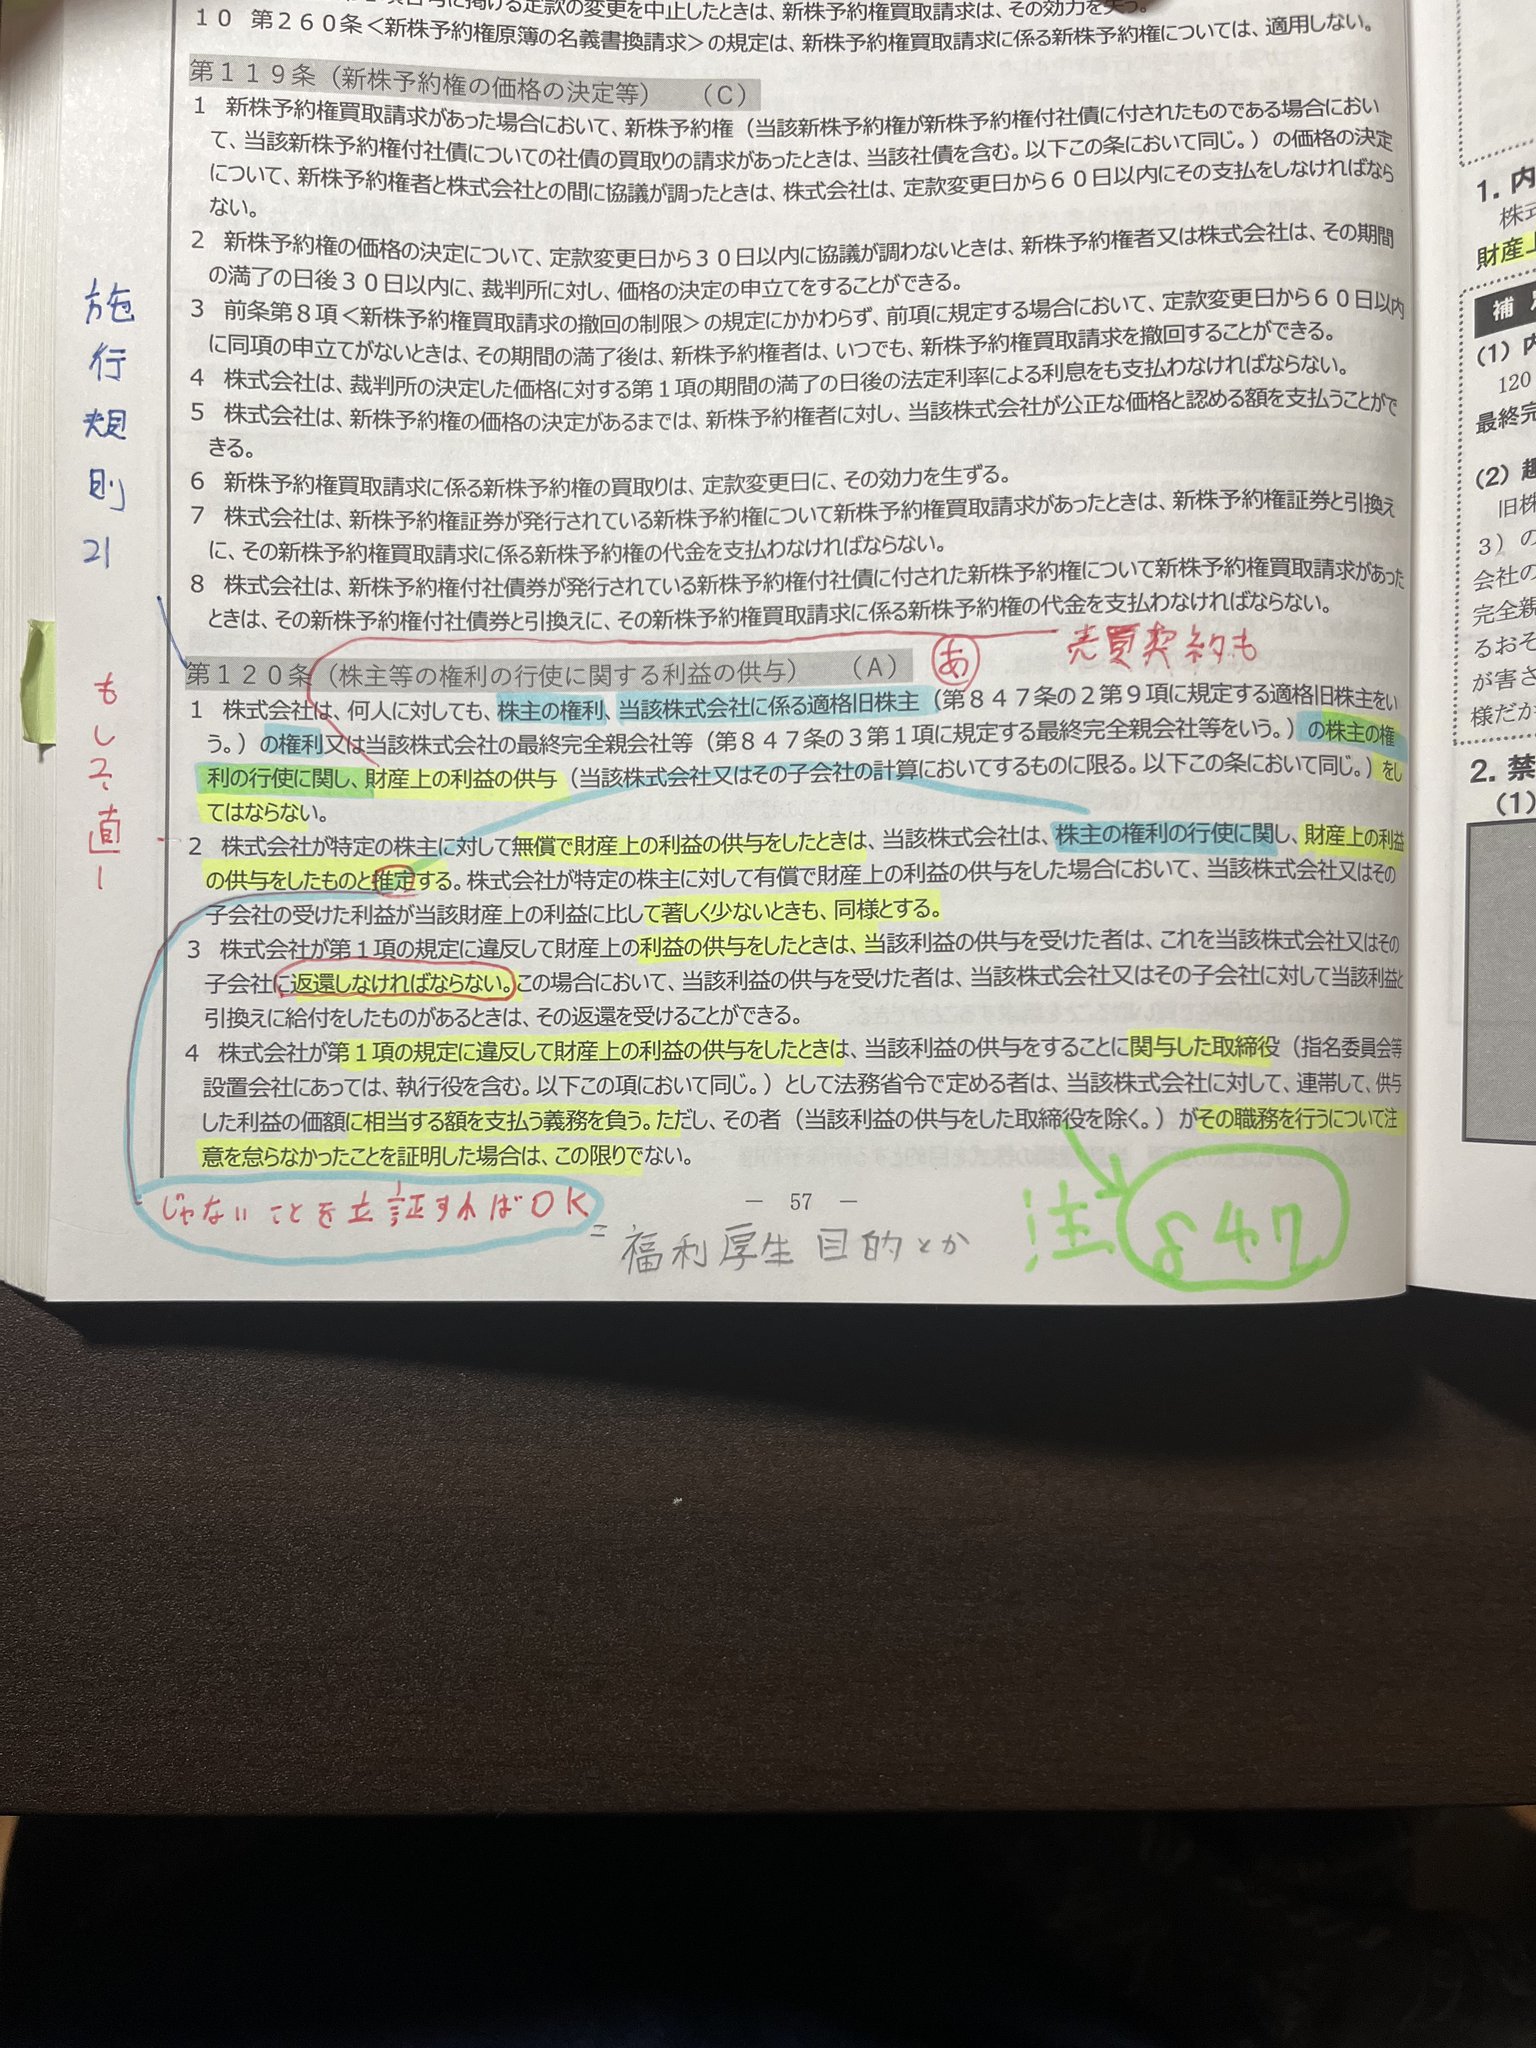 定款の変更を中止したときは、新株予約権買取請求は、その効力を失う。
10 第260条<新株予約権原簿の名義書換請求>の規定は、新株予約権買取請求に係る新株予約権については、適用しない。
第119条(新株予約権の価格の決定等) (C)
1 新株予約権買取請求があった場合において、新株予約権(当該新株予約権が新株予約権付社債に付されたものである場合におい
て、当該新株予約権付社債についての社債の買取りの請求があったときは、当該社債を含む。以下この条において同じ。)の価格の決定
について、新株予約権者と株式会社との間に協議が調ったときは、株式会社は、定款変更日から60日以内にその支払をしなければなら
ない。
2 新株予約権の価格の決定について、定款変更日から30日以内に協議が調わないときは、新株予約権者又は株式会社は、その期間
の満了の日後30日以内に、裁判所に対し、価格の決定の申立てをすることができる。
3 前条第8項<新株予約権買取請求の撤回の制限>の規定にかかわらず、前項に規定する場合において、定款変更日から60日以内
に同項の申立てがないときは、その期間の満了後は、新株予約権者は、いつでも、新株予約権買取請求を撤回することができる。
4 株式会社は、裁判所の決定した価格に対する第1項の期間の満了の日後の法定利率による利息をも支払わなければならない。
5 株式会社は、新株予約権の価格の決定があるまでは、新株予約権者に対し、当該株式会社が公正な価格と認める額を支払うことがで
きる。
6 新株予約権買取請求に係る新株予約権の買取りは、定款変更日に、その効力を生ずる。
7 株式会社は、新株予約権証券が発行されている新株予約権について新株予約権買取請求があったときは、新株予約権証券と引換え
に、その新株予約権買取請求に係る新株予約権の代金を支払わなければならない。
8 株式会社は、新株予約権付社債券が発行されている新株予約権付社債に付された新株予約権について新株予約権買取請求があった
ときは、その新株予約権付社債券と引換えに、その新株予約権買取請求に係る新株予約権の代金を支払わなければならない。
施行規則21
売買契約も
第120条(株主等の権利の行使に関する利益の供与) (A) あ
1 株式会社は、何人に対しても、株主の権利、当該株式会社に係る適格旧株主(第847条の2第9項に規定する適格旧株主をい
う。)の権利又は当該株式会社の最終完全親会社等(第847条の3第1項に規定する最終完全親会社等をいう。)の株主の権
利の行使に関し、財産上の利益の供与(当該株式会社又はその子会社の計算においてするものに限る。以下この条において同じ。)をし
てはならない。
2 株式会社が特定の株主に対して無償で財産上の利益の供与をしたときは、当該株式会社は、株主の権利の行使に関し、財産上の利益
の供与をしたものと推定する。株式会社が特定の株主に対して有償で財産上の利益の供与をした場合において、当該株式会社又はその
子会社の受けた利益が当該財産上の利益に比して著しく少ないときも、同様とする。
3 株式会社が第1項の規定に違反して財産上の利益の供与をしたときは、当該利益の供与を受けた者は、これを当該株式会社又はその
子会社に返還しなければならない。この場合において、当該利益の供与を受けた者は、当該株式会社又はその子会社に対して当該利益と
引換えに給付をしたものがあるときは、その返還を受けることができる。
4 株式会社が第1項の規定に違反して財産上の利益の供与をしたときは、当該利益の供与をすることに関与した取締役(指名委員会等
設置会社にあっては、執行役を含む。以下この項において同じ。)として法務省令で定める者は、当該株式会社に対して、連帯して、供与
した利益の価額に相当する額を支払う義務を負う。ただし、その者(当該利益の供与をした取締役を除く。)がその職務を行うについて注
意を怠らなかったことを証明した場合は、この限りでない。
じゃないことを立証すればOK
= 福利厚生目的とか
注 847
― 57 ―
1. 内
株式
財産上
補
(1) 内
120
最終完
(2) 趣
旧株
3)の
会社の
完全親
るおそ
が害さ
様だが
2. 禁
(1)